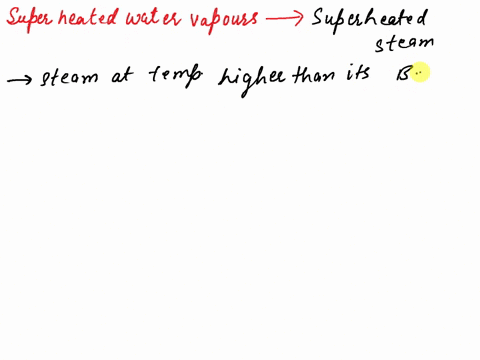 Super heated water vapours → Superheated
steam
→ steam at temp higher than its B.